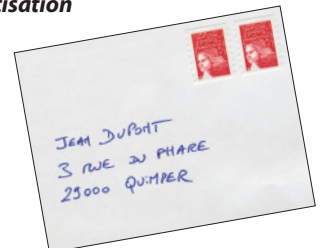 tisation
JEAN DUPONT
3 RUE DU PHARE
29000 QUIMPER